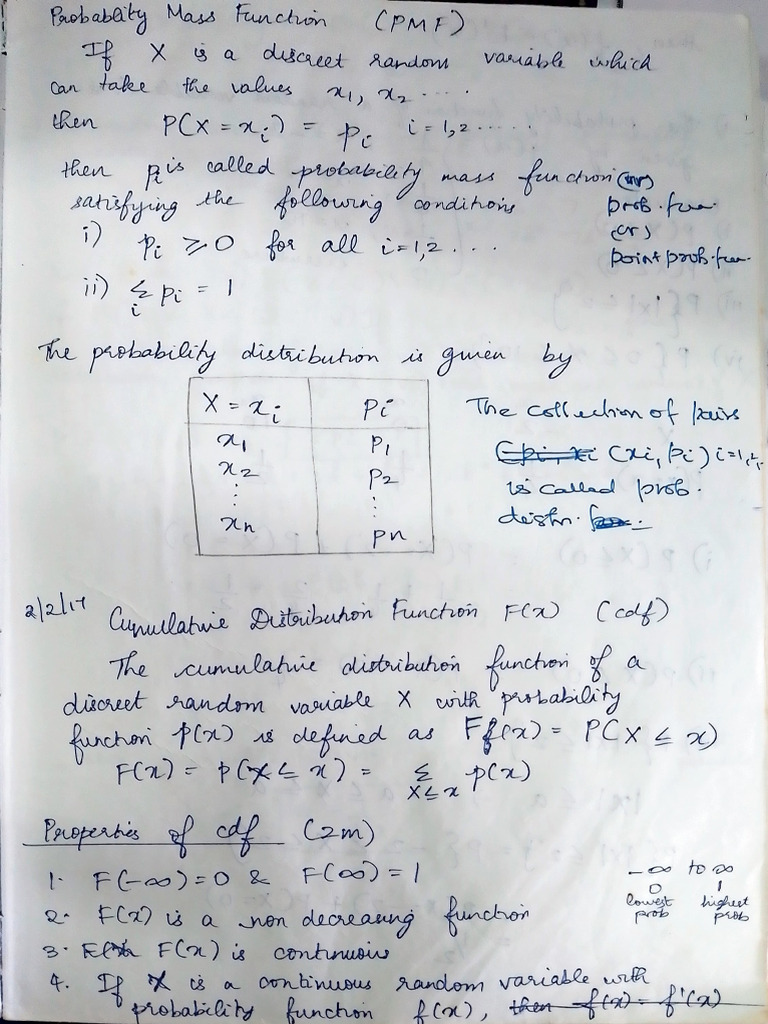 Probablity Mass Function (PMF)
If X is a discreet random variable which
can take the values x₁, x₂ ....
then P(X = xᵢ) = pᵢ i = 1,2 .....
then pᵢ is called probability mass function (or)
satisfying the following conditions prob. fun.
(or)
i) pᵢ ≥ 0 for all i = 1,2 ....
point prob. fun.
ii) Σᵢ pᵢ = 1
The probability distribution is given by
X = xᵢ pᵢ
x₁ p₁
x₂ p₂
⋮ ⋮
xn pn
The collection of pairs
(xi, pi) i=1,2,
is called prob.
distn.
2/2/17 Cumullative Distribution Function F(x) (cdf)
The cumulative distribution function of a
discreet random variable X with probability
function p(x) is defined as F(x) = P(X ≤ x)
F(x) = p(X ≤ x) = Σ X≤x p(x)
Properties of cdf (2m)
1. F(-∞) = 0 & F(∞) = 1
-∞ to ∞
0 1
lowest highest
prob prob
2. F(x) is a non decreasing function
3. F(x) is continuous
4. If X is a continuous random variable with
probability function f(x), then f(x) = f'(x)